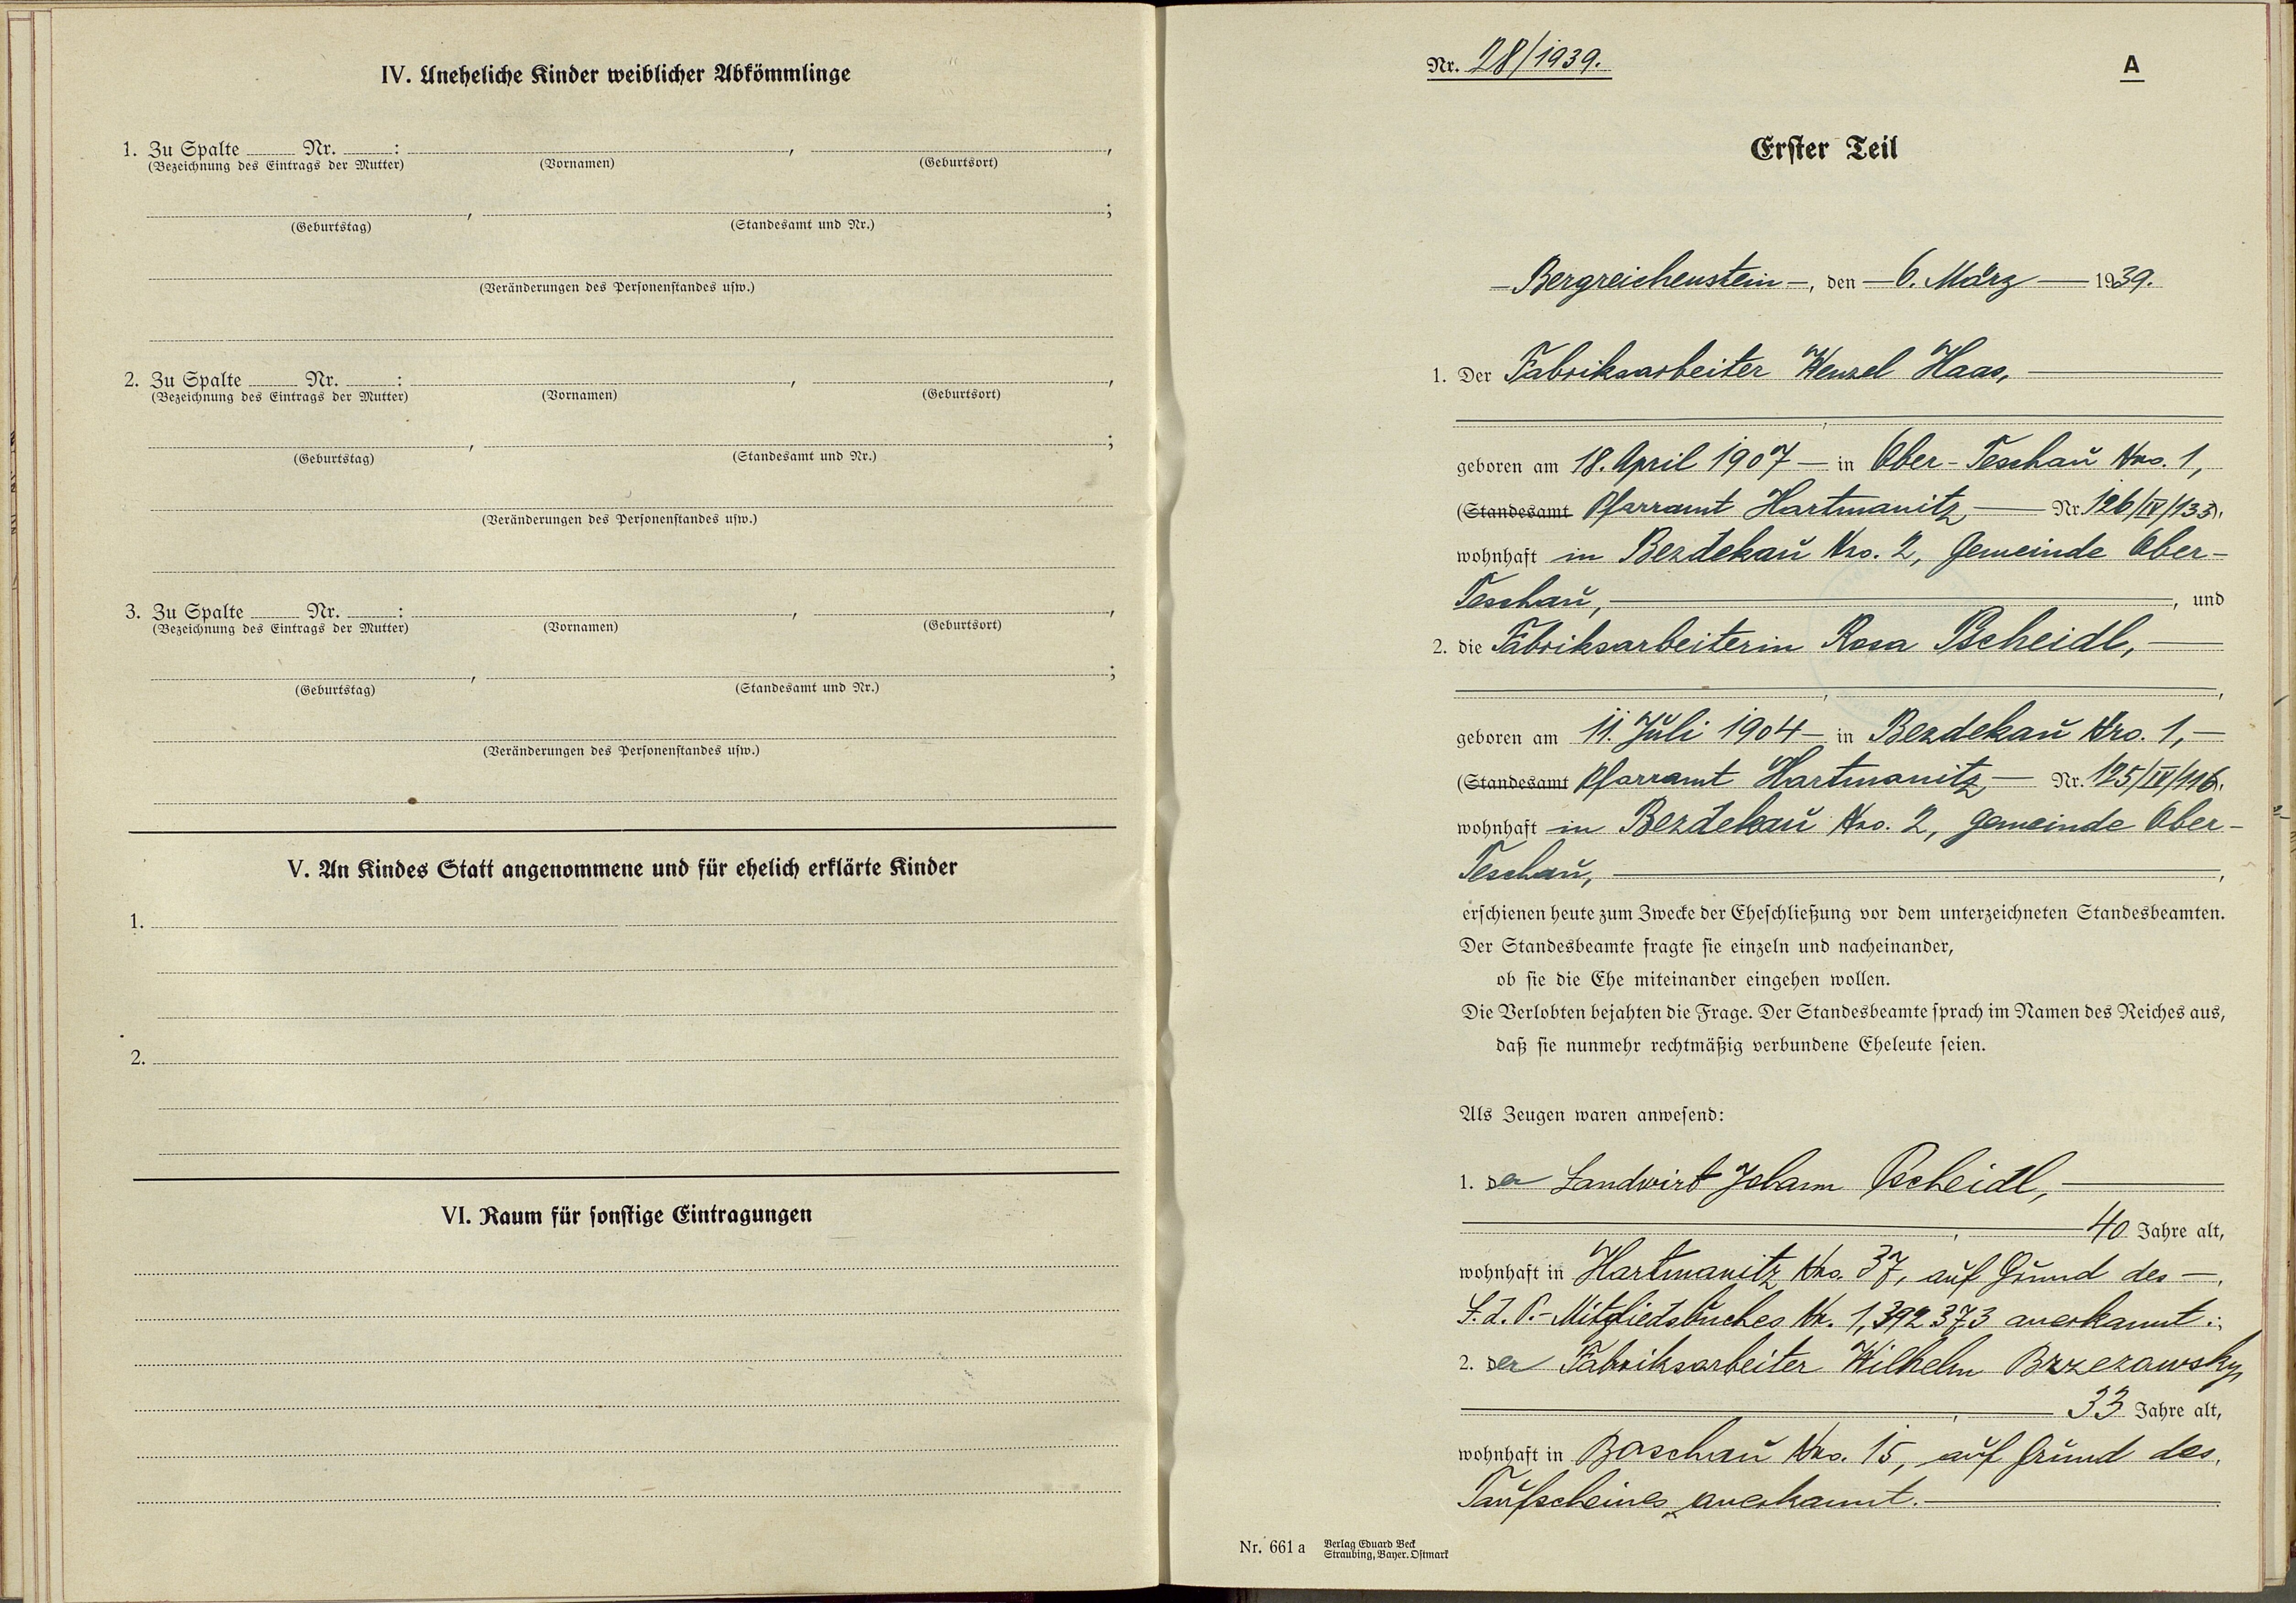 IV. Uneheliche Kinder weiblicher Abkömmlinge
1. Zu Spalte Nr. : , ,
(Bezeichnung des Eintrags der Mutter) (Vornamen) (Geburtsort)
, ;
(Geburtstag) (Standesamt und Nr.)
(Veränderungen des Personenstandes usw.)
2. Zu Spalte Nr. : , ,
(Bezeichnung des Eintrags der Mutter) (Vornamen) (Geburtsort)
, ;
(Geburtstag) (Standesamt und Nr.)
(Veränderungen des Personenstandes usw.)
3. Zu Spalte Nr. : , ,
(Bezeichnung des Eintrags der Mutter) (Vornamen) (Geburtsort)
, ;
(Geburtstag) (Standesamt und Nr.)
(Veränderungen des Personenstandes usw.)
V. An Kindes Statt angenommene und für ehelich erklärte Kinder
1.
2.
VI. Raum für sonstige Eintragungen
Nr. 28/1939.
A
Erster Teil
— Bergreichenstein —, den — 6. März — 1939.
1. Der Fabriksarbeiter Wenzel Haas,
geboren am 18. April 1907 — in Ober-Teschau Nro. 1,
(Standesamt Pfarramt Hartmanitz — Nr. 126/IV/133).
wohnhaft in Bezdekau Nro. 2, Gemeinde Ober-
Teschau, —, und
2. die Fabriksarbeiterin Rosa Pscheidl, —
geboren am 11. Juli 1904 — in Bezdekau Nro. 1, —
(Standesamt Pfarramt Hartmanitz — Nr. 125/IV/116).
wohnhaft in Bezdekau Nro. 2, Gemeinde Ober-
Teschau, —,
erschienen heute zum Zwecke der Eheschließung vor dem unterzeichneten Standesbeamten.
Der Standesbeamte fragte sie einzeln und nacheinander,
ob sie die Ehe miteinander eingehen wollen.
Die Verlobten bejahten die Frage. Der Standesbeamte sprach im Namen des Reiches aus,
daß sie nunmehr rechtmäßig verbundene Eheleute seien.
Als Zeugen waren anwesend:
1. der Landwirt Johann Pscheidl, —
40 Jahre alt,
wohnhaft in Hartmanitz Nro. 37, auf Grund des —
S.d.P.-Mitgliedsbuches Nr. 1,392373 anerkannt.
2. der Fabriksarbeiter Wilhelm Brzezawsky,
33 Jahre alt,
wohnhaft in Boschau Nro. 15, auf Grund des
Taufscheines anerkannt. —
Nr. 661 a Verlag Eduard Beck
Straubing, Bayer. Ostmark